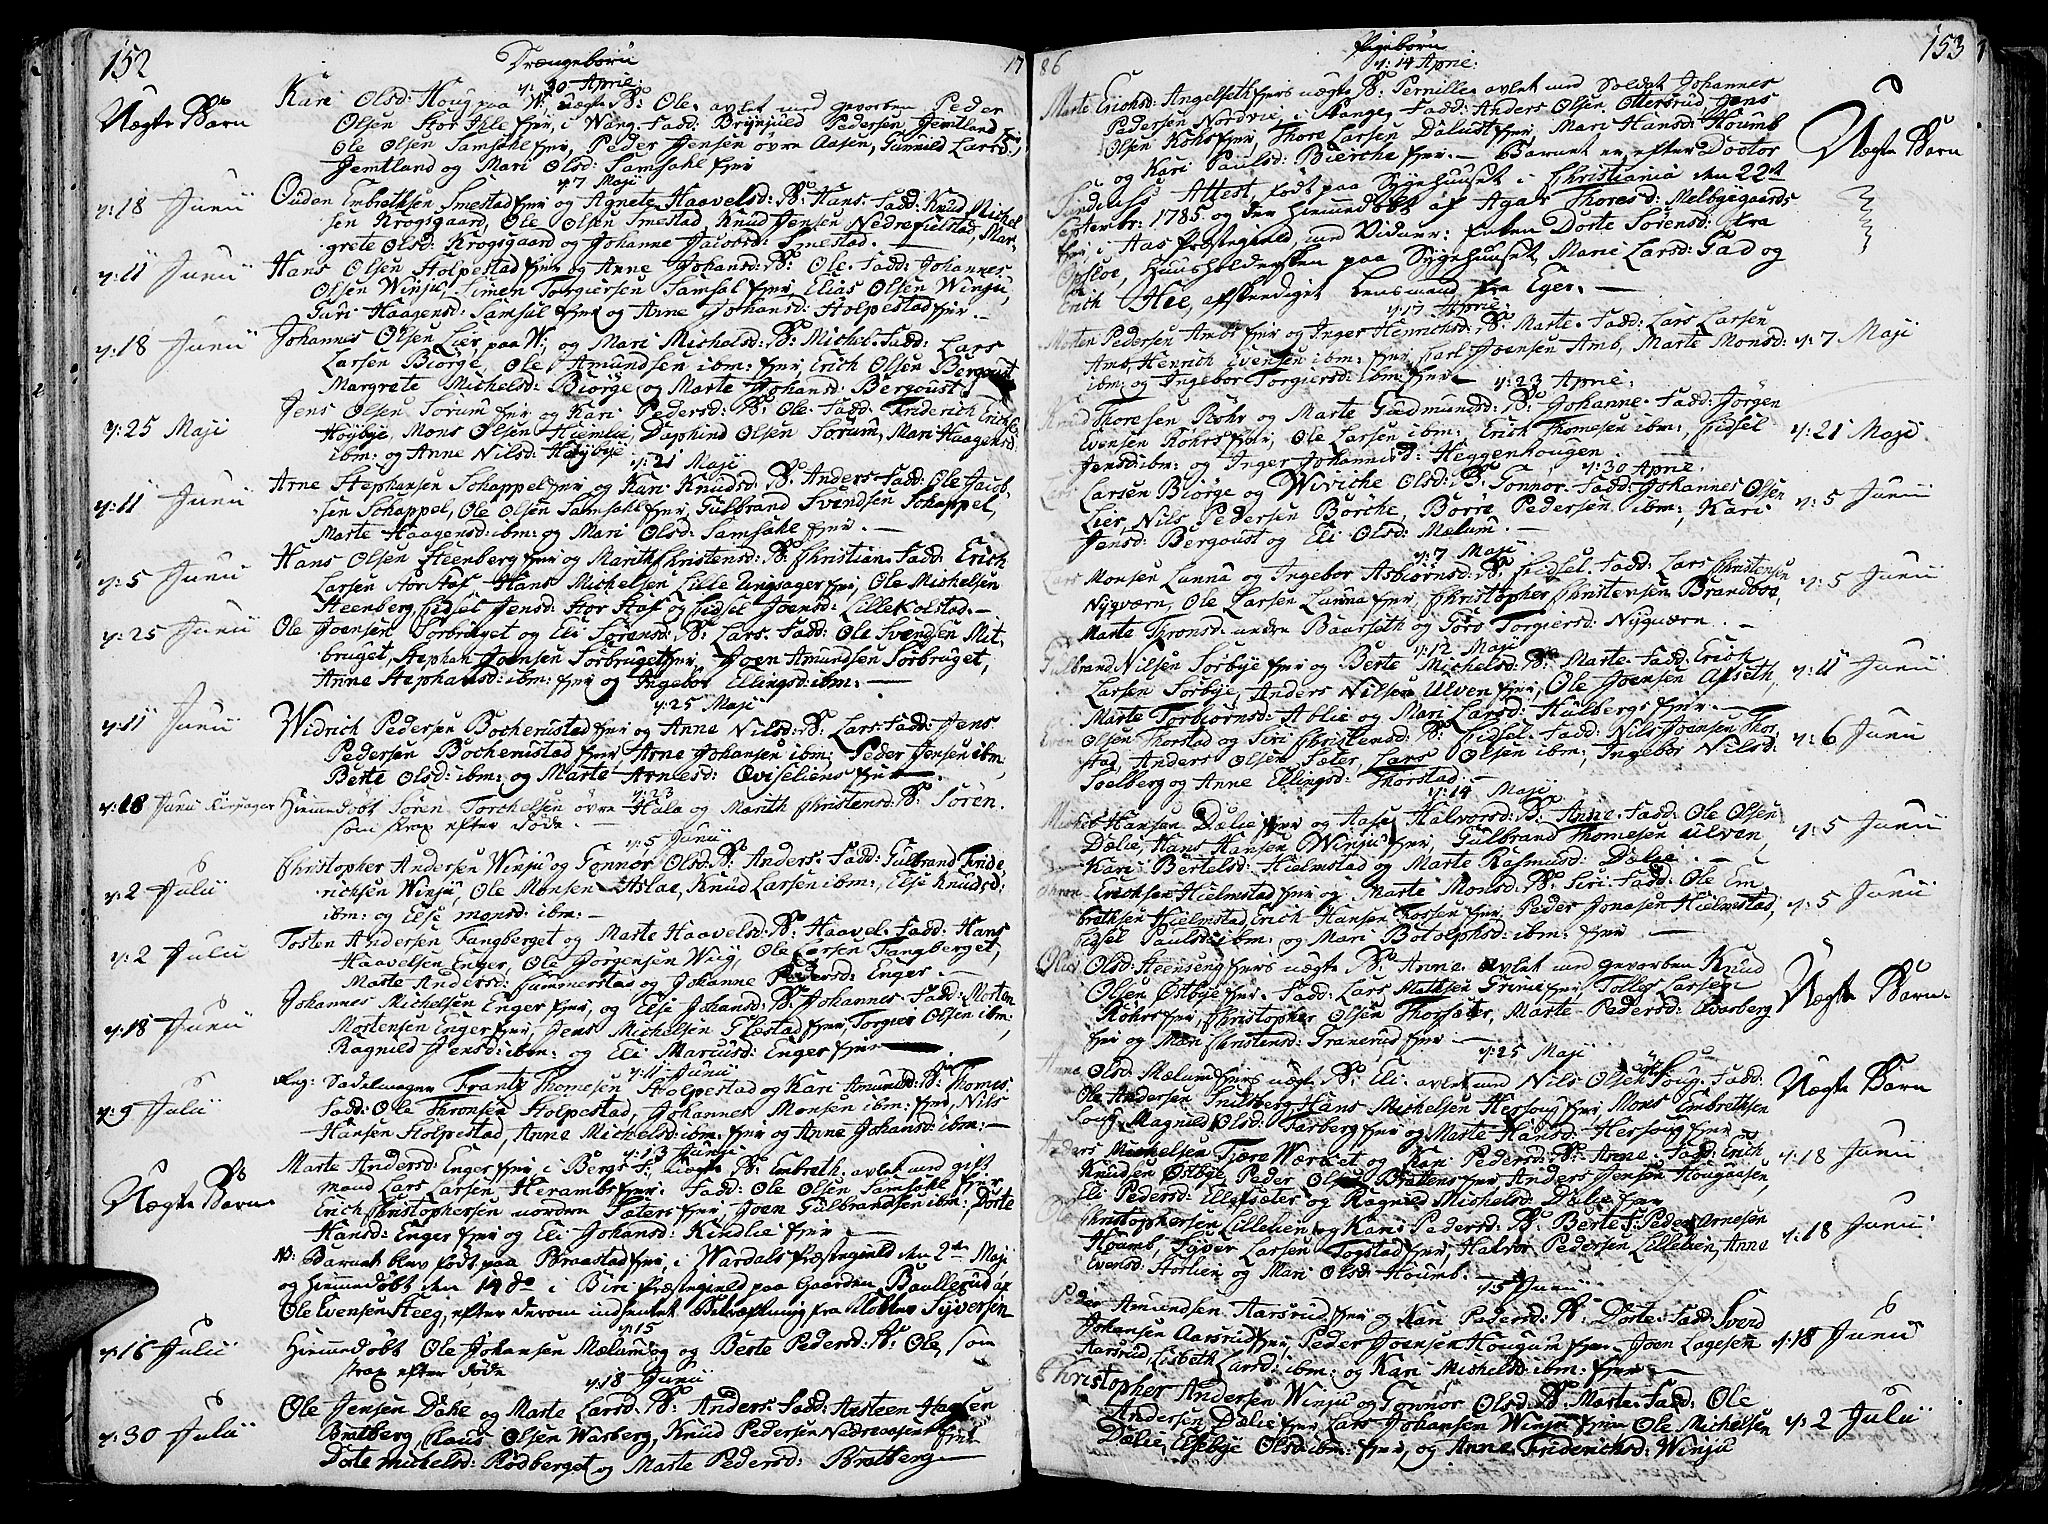 152
Drængebörn
17
d: 30 Aprie:
Uægte Barn
Kari Olsd: Houg paa W: uægte B: Ole. avlet med gevorben Peder
Olsen Stor Ihle fjer, i Wang. Fadd: Brynjuld Pedersen Jemtland
Ole Olsen Samsahl fjer, Peder Jensen övre Aasen, Gunnild Larsd:
Jemtland og Mari Olsd: Samsahl fjer
d: 7 Maji
d: 18 Junii
Ouden Embrethsen Smestad fjer og Agnete Haavelsd: B: Hans. Fadd: Knud Michel
sen Krogsgaard, Ole Olsen Smestad, Knud Jensen Nedrefielstad, Mar,
grete Olsd: Krogsgaard og Johanne Jacobsd: Smestad.
d: 11 Junii
Hans Olsen Stolpestad fjer og Anne Johansd: B: Ole. Fadd: Johannes
Olsen Winju, Simen Torgiersen Samsal fjer, Elias Olsen Winju,
Guri Haagensd: Samsal fjer og Anne Johansd: Stolpestad fjer.
d: 18 Junii
Johannes Olsen Lier, paa W: og Mari Michelsd: B: Michel. Fadd: Lars
Larsen Biörge, Ole Amundsen ibm: fjer, Erich Olsen Bergoust
Margrete Michelsd: Biörge og Marte Johansd: Bergoust.
d: 25 Maji
Jens Olsen Sorum fjer og Kari Pedersd: B: Ole. Fadd: Friderich Erichs:
Höybye, Mons Olsen Hiemlie, Daphind Olsen Sorum, Mari Haagensd:
ibm: og Anne Nilsd: Höybye
d: 21 Maji
d: 11 Junii
Arne Stephansen Schappel fjer og Kari Knudsd: B: Anders. Fadd: Ole Jacob-
sen Schappel, Ole Olsen Samsahl fjer, Gulbrand Svendsen Schappel,
Marte Haagensd: ibm: og Mari Olsd: Samsahl fjer.
d: 5 Junii
Hans Olsen Steenberg fjer og Marith Christensd: B: Christian. Fadd: Erich
Larsen Stor Staf Hans Michelsen Lille Ungsager fjer, Ole Michelsen
Steenberg, Sidsel Jensd: Stor Staf og Sidsel Joensd: Lillekolstad.
d: 25 Junii
Ole Joensen Sorbruget og Eli Sörensd: B: Lars. Fadd: Ole Svendsen Mit-
bruget, Stephan Joensen Sorbruget fjer, Joen Amundsen Sorbruget,
Anne Stephansd: ibm: fjer og Ingebor Ellingsd: ibm:
d: 25 Maji
d: 11 Junii
Widrich Pedersen Bochenstad fjer og Anne Nilsd: B: Lars. Fadd: Jens
Pedersen Bochenstad fjer, Arne Johansen ibm: Peder Jensen ibm:
Berte Olsd: ibm: og Marte Arnesd: Qviseliens fjer
d: 23
d: 18 Junii
Hiemmedöbt Sören Torchelsen övre Hala og Marith Christensd: B: Sören.
som strax efter döde.
d: 5 Junii
d: 2 Julii
Christopher Andersen Winju og Gonnor Olsd: B: Anders. Fadd: Gulbrand Fride,
richsen Winju, Ole Monsen Aslae, Knud Larsen ibm:, Else Knudsd:
ibm: og Else Monsd: ibm:
d: 2 Julii
Tosten Andersen Fangberget og Marte Haavelsd: B: Haavel. Fadd: Hans
Haavelsen Enger, Ole Jorgensen Wiig, Ole Larsen Fangberget,
Marte Andersd: Gummerstad og Johanne Pedersd: Enger.
d: 18 Junii
Johannes Michelsen Enger fjer, og Else Johansd: B: Johannes. Fadd: Morten
Mortensen Enger fjer, Jens Michelsen Glæstad fjer, Torgier Olsen ibm:
Ragnild Jensd: ibm: og Eli Marcusd: Enger fjer
d: 11 Junii
d: 9 Julii
Sadelmager Frantz Thomesen Stolpestad og Kari Amundsd: B: Thomes
Fadd: Ole Thronsen Stolpestad, Johannes Monsen ibm: fjer, Nils
Hansen Stolpestad, Anne Michelsd: ibm: fjer og Anne Johansd: ibm:
d: 13 Junii
Uægte Barn
Marte Andersd: Enger fjer, i Bergs F: uægte B: Embreth. avlet med gift
mand Lars Larsen Herambs fjer. Fadd: Ole Olsen Samsahl fjer,
Erich Christophersen norden Sæters fjer, Joen Gulbrandsen ibm:, Dorte
Hansd: Enger fjer og Eli Johansd: Kindlie fjer
NB: Barnet blev födt paa Braastad fjer, i Wardals Præstegield den 2den Maji
og hiemmedöbt den 14 do i Biri Præstegield paa Gaarden Baullerud af
Ole Evensen Steeg, efter derom indsendt Bekræftning fra Sysversen
d: 15
d: 16 Julii
Hiemmedöbt Ole Johansen Mælum og Berte Pedersd: B: Ole, som
strax efter döde
d: 18 Junii
d: 30 Julii
Ole Jensen Dahl og Marte Larsd: B: Anders. Fadd: Austeen Hansen
Bratberg, Claus Olsen Warberg, Knud Pedersen Nedreaasen fjer
Dorte Michelsd: Rodberget og Marte Pedersd: Bratberg
86
Pigebörn
153
d: 14 Aprie:
Marte Erichsd: Angelseth fjers uægte B: Pernille. avlet med Soldat Johannes
Pedersen Nordvie, i Vange, Fadd: Anders Olsen Ottersrud, Jens
Olsen Kohs fjer, Thore Larsen Dalust fjer, Mari Hansd: Houmb
og Kari Paulsd: Bierche fjer. Barnet er efter Doctor
Uægte Barn
Attest, födt paa Sygehuuset i Christiania den 22de
September: 1785 og der hiemmedöbt af Agar Thoresd: Melbyegaards
fjer, i Aas Præstegield, med Vidner: Enken Dorte Sörensd: fra
Opsloe, Huusholdersken paa Sygehuuset, Marie Larsd: Gad og
Erich Hee, afskediget Lensmand fra Eger.
d: 17 Aprie:
Morten Pedersen Amb fjer og Inger Henrichsd: B: Marte. Fadd: Lars Larsen
Amb, Henrich Evensen ibm: fjer, Carl Joensen Amb, Marte Monsd:
ibm: og Ingebor Torgiersd: ibm: fjer
d: 7 Maji
d: 23 Aprie:
Knud Thoresen Röhr og Marte Gudmundsd: B: Johanne. Fadd: Jörgen
Evensen Röhrs fjer, Ole Larsen ibm: Erich Thomesen ibm: Sidsel
Jensd: ibm: og Inger Johannesd: Heggenhougen.
d: 21 Maji
d: 30 Aprie:
Lars Larsen Biörge og Wiviche Olsd: B: Gonnor. Fadd: Johannes Olsen
Lier, Nils Pedersen Börche, Börre Pedersen ibm:, Kari
Jensd: Bergoust og Eli Olsd: Mælum.
d: 5 Junii
d: 7 Maji
Lars Monsen Lunna og Ingebor Asbiörnsd: B: Sidsel. Fadd: Lars Christensen
Nyqværn, Ole Larsen Lunna fjer, Christopher Christensen Brandboe,
Marte Thronsd: nedre Baarseth og Goro Torgiersd: Nyqværn.
d: 5 Junii
d: 12 Maji
Gulbrand Nilsen Sorbye fjer og Berte Michelsd: B: Marte. Fadd: Erich
Larsen Sorbye, Anders Nilsen Ulven fjer, Ole Joensen Alseth,
Marte Torbiornsd: Ablie og Mari Larsd: Hulbergs fjer.
d: 11 Junii
Even Olsen Thorstad og Siri Christensd: B: Sidsel. Fadd: Nils Joensen Thor-
stad, Anders Olsen Sæter, Lars Olsen ibm:, Ingebor Nilsd:
Soelberg og Anne Ellingsd: Thorstad.
d: 6 Junii
d: 14 Maji
Michel Hansen Dælie fjer og Aase Halvorsd: B: Anne. Fadd: Ole Olsen
Dælie, Hans Hansen Winju fjer, Gulbrand Thomesen Ulven,
Kari Bertelsd: Hielmstad og Marte Rasmusd: Dælie.
d: 5 Junii
Erichsen Hielmstad fjer og Marte Monsd: B: Siri. Fadd: Ole Em-
brethsen Hielmstad, Erich Hansen Fossen fjer, Peder Jonasen Hielmstad,
Sidsel Paulsd: ibm: og Mari Botolphsd: ibm: fjer
d: 5 Junii
Oliv Olsd: Steenseng fjers uægte B: Anne. Avlet med gevorben Knud
Olsen Östbye fjer. Fadd: Lars Mathsen Grime fjer, Tolleg Larsen
Röhrs fjer, Christopher Olsen Thorsæter, Marte Pedersd: Qvarberg
fjer og Mari Christensd: Tranerud fjer
Uægte Barn.
d: 25 Maji
Anne Olsd: Mælum fjers uægte B: Eli. avlet med Nils Olsen Soug. Fadd:
Ole Andersen Inilsberg, Hans Michelsen Hersoug fjer, Mons Embrethsen
Soug, Magnild Olsd: Farberg fjer og Marte Hansd: Hersoug fjer
Uægte Barn
Anders Michelsen Tjære Wærket og Kari Pedersd: B: Anne. Fadd: Erich
Knudsen Östbye, Peder Olsen Brattens fjer, Anders Jensen Hougaasen,
Eli Pedersd: Ellefsæter og Ragnild Michelsd: Dælie fjer
d: 18 Junii
Ole Christophersen Lillelien og Kari Pedersd: B: Berte. F: Peder Arnesen
Houmb, Syver Larsen Togstad fjer, Halvor Pedersen Lillelien, Anne
Evensd: Storlien og Mari Olsd: Houmb.
d: 18 Junii
d: 5 Junii
Peder Amundsen Aarsrud fjer og Kari Pedersd: B: Dorte. Fadd: Svend
Johansen Aarsrud fjer, Peder Joensen Hougum fjer, Joen Lagesen
Aarsrud, Lisbeth Larsd: ibm: og Kari Michelsd: ibm: fjer
d: 18 Junii
Christopher Andersen Winju og Gonnor Olsd: B: Marte. Fadd: Ole
Andersen Dælie fjer, Lars Johansen Winju fjer, Ole Michelsen
Dælie, Elsebye Olsd: ibm: fjer, og Anne Friderichsd: Winju
d: 2 Julii